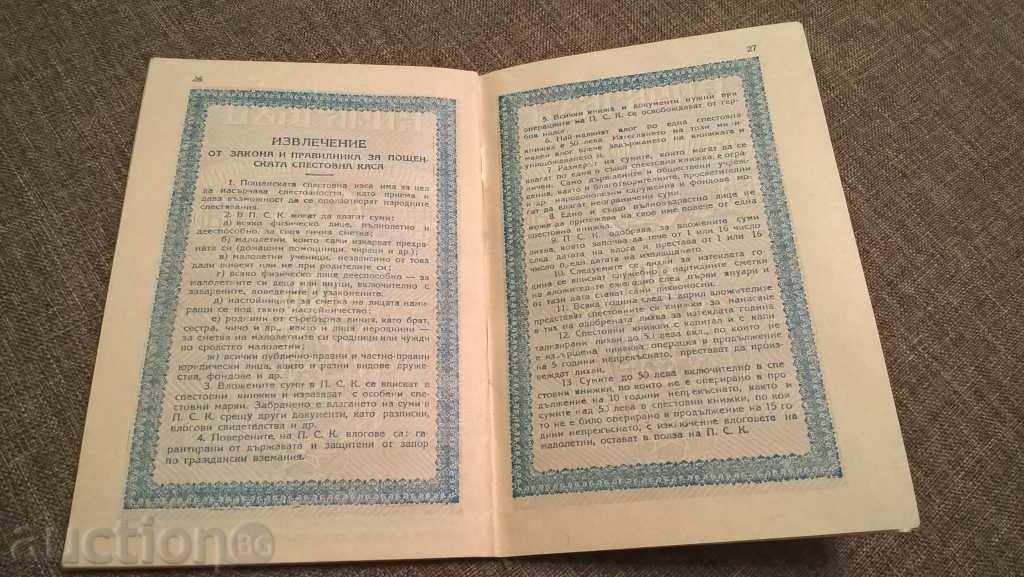 26
ИЗВЛЕЧЕНИЕ
ОТ ЗАКОНА И ПРАВИЛНИКА ЗА ПОЩЕН-
СКАТА СПЕСТОВНА КАСА
1. Пощенската спестовна каса има за цел
да насърчава спестовността, като приема и
дава възможност да се оползотворят народните
спестявания.
2. В П. С. К. могат да влагат суми:
а) всяко физическо лице, пълнолетно и
дееспособно, за своя лична сметка;
б) малолетни, които сами изкарват прехра-
ната си (домашни помощници, чираци и др.);
в) малолетни ученици, независимо от това
дали живеят или не при родителите си;
г) всяко физическо лице дееспособно — за
малолетните си деца или внуци, включително с
заварените, доведените и узаконените.
д) настойниците за сметка на лицата нами-
ращи се под тяхно настойничество;
е) роднини от съребърна линия, като брат,
сестра, чичо и др., както и лица неродници —
за сметка на малолетните си сродници или чужди
по сродство малолетни;
ж) всички публично-правни и частно-правни
юридически лица, както и разни видове друже-
ства, фондове и др.
3. Вложените суми в П. С. К. се вписват в
спестовни книжки и изразяват с особени спе-
стовни марки. Забранено е влагането на суми в
П. С. К. срещу други документи, като разписки,
влогови свидетелства и др.
4. Поверените, на П. С. К. влогове са: га-
рантирани от държавата и защитени от запор
по граждански вземания.
27
5. Всички книжа и документи нужни при
операциите на П. С. К. се освобождават от гер-
бов налог.
6. Най-малкият влог по една спестовна
книжка е 50 лева. Изтеглянето на този мини-
мален влог влече задържането на книжката и
унищожаването и.
7. Размерът на сумите, които могат да се
влагат по една и съща спестовна книжка, е огра-
ничен. Само държавните и общественни учреж-
дения, както и благотворителните, просветителни
и др. народополезни сдружения и фондове, мо-
гат да влагат неограничени суми.
8. Едно и също пълновъзрастно лице не
може да притежава на свое име повече от една
спестовна книжка.
9. П. С. К. одобрява за вложените суми
лихва, която започва да тече от 1 или 16 число
след датата на влога и престава от 1 или 16
число пред датата на изплащането.
10. Следуемите се лихви за изтеклата го-
дина се вписват служебно в партидните сметки
на вложителите ежегодно след първи януари и
от тази дата стават сами лихвоносни.
11. Всяка година след 1 април вложителите
представят спестовните си книжки за нанасяне
в тях на одобрената лихва за изтеклата година.
12. Спестовни книжки с капитал и с капи-
тализирани лихви до 50 лева вкл., по които не
е извършена никаква операция в продължение
на 5 години непрекъснато, престават да произ-
веждат лихви.
13 Сумите до 50 лева включително в спе-
стовни книжки, по които не е оперирано в про-
дължение на 10 години непрекъснато, както и
сумите над 50 лева в спестовни книжки, по кои-
то не е било оперирано в продължение на 15 го-
дини непрекъснато, с изключение влоговете на
малолетни, остават в полза на П. С. К.
auctionBG